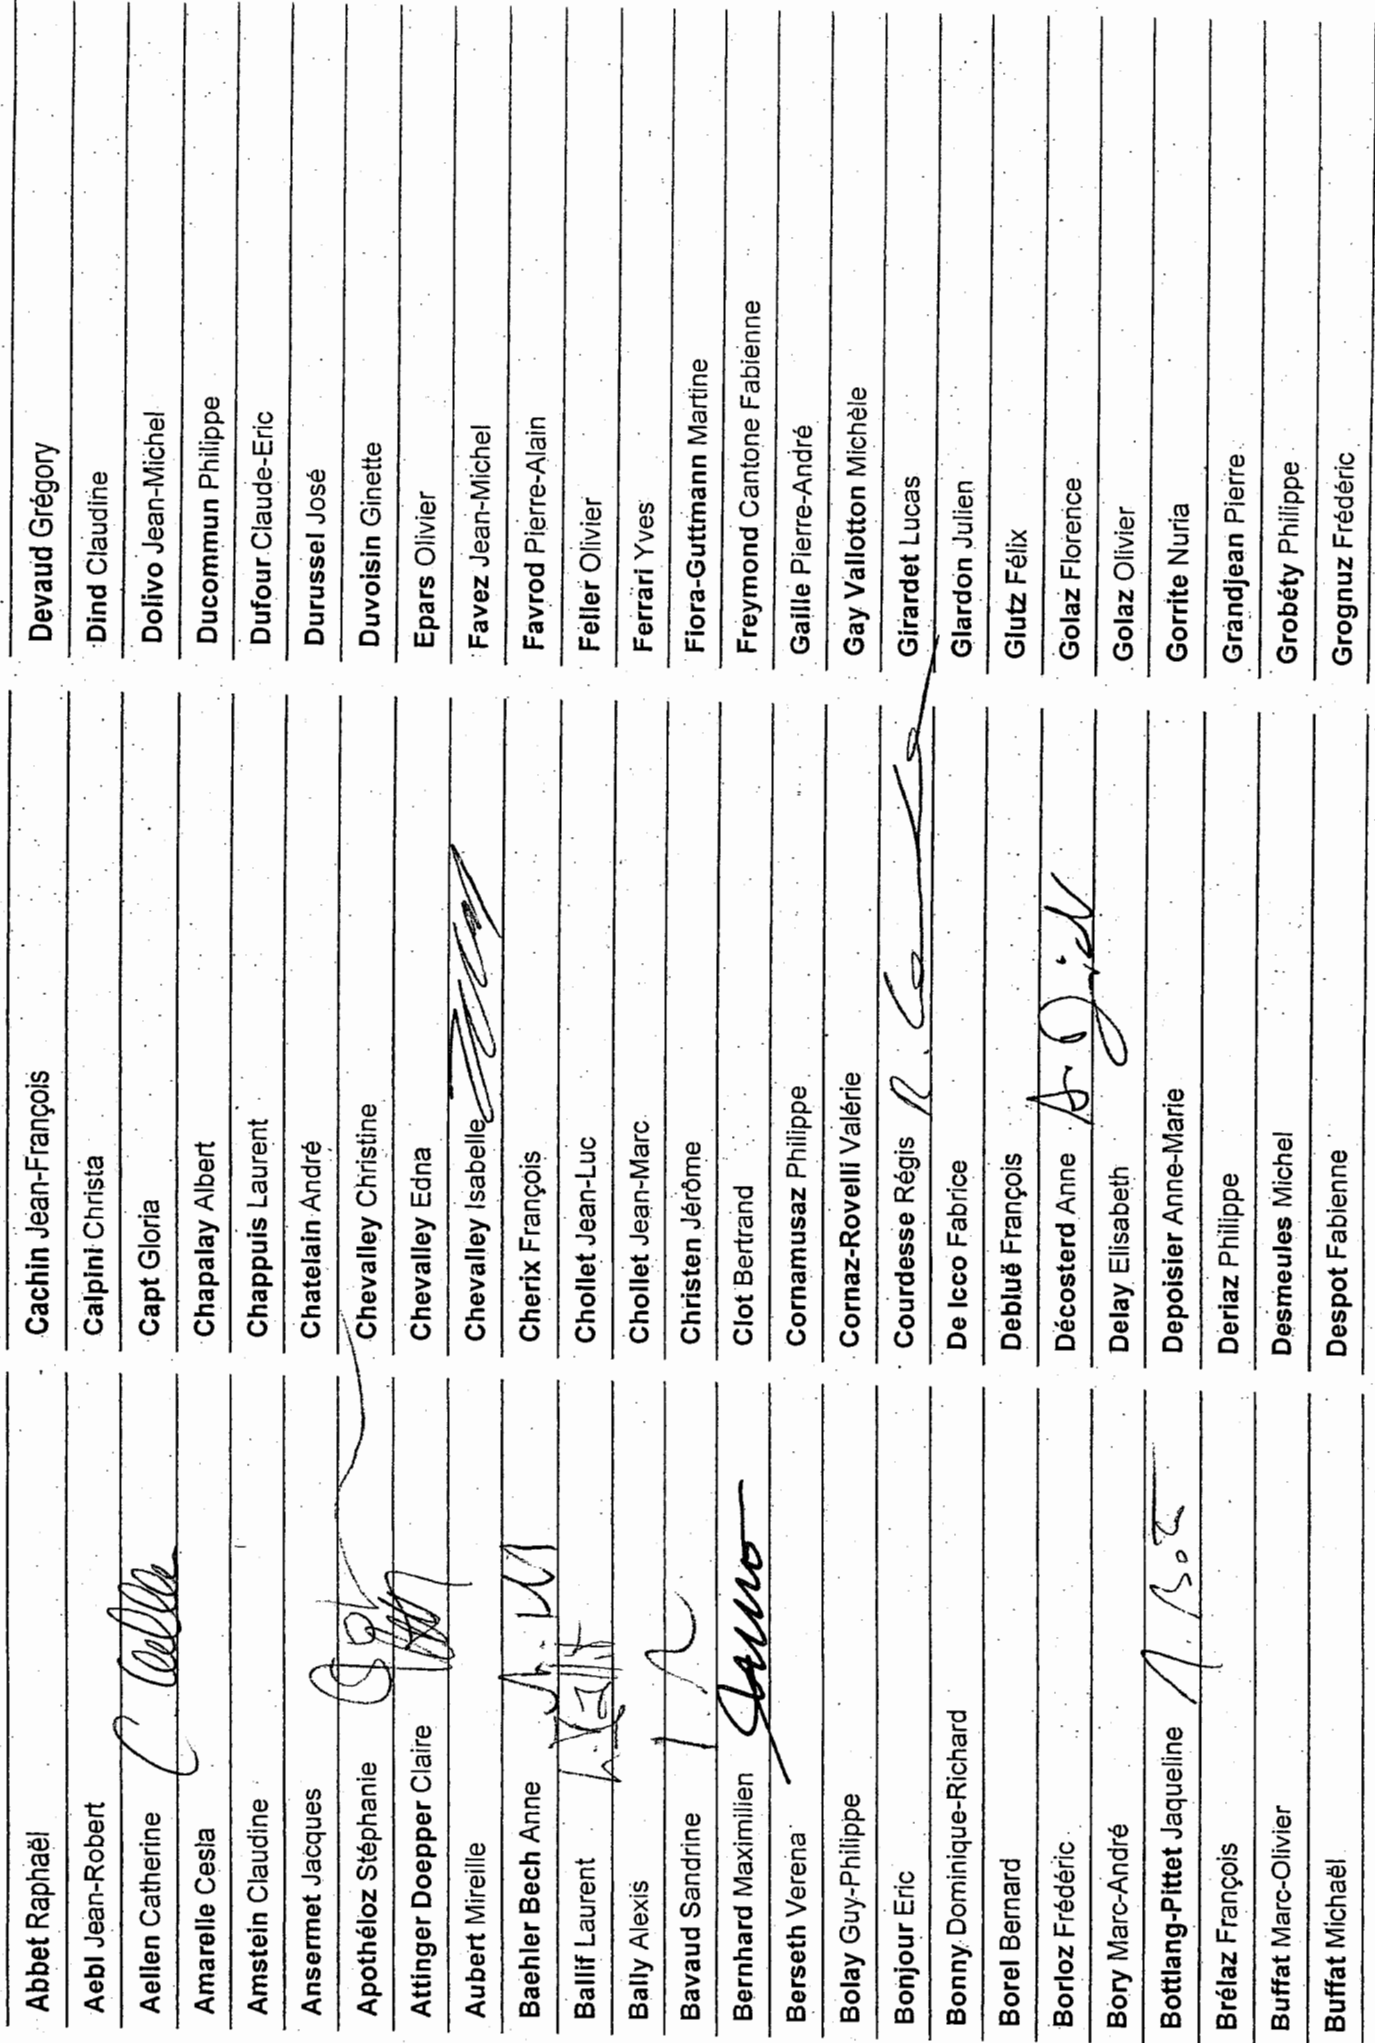 Abbet Raphaël
Aebi Jean-Robert
Aellen Catherine
Amarelle Cesla
Amstein Claudine
Ansermet Jacques
Apothéloz Stéphanie
Attinger Doepper Claire
Aubert Mireille
Baehler Bech Anne
Ballif Laurent
Bally Alexis
Bavaud Sandrine
Bernhard Maximilien
Berseth Verena
Bolay Guy-Philippe
Bonjour Eric
Bonny Dominique-Richard
Borel Bernard
Borloz Frédéric
Bory Marc-André
Bottlang-Pittet Jaqueline
Brélaz François
Buffat Marc-Olivier
Buffat Michaël
Cachin Jean-François
Calpini Christa
Capt Gloria
Chapalay Albert
Chappuis Laurent
Chatelain André
Chevalley Christine
Chevalley Edna
Chevalley Isabelle
Cherix François
Chollet Jean-Luc
Chollet Jean-Marc
Christen Jérôme
Clot Bertrand
Cornamusaz Philippe
Cornaz-Rovelli Valérie
Courdesse Régis
De Icco Fabrice
Debluë François
Décosterd Anne
Delay Elisabeth
Depoisier Anne-Marie
Deriaz Philippe
Desmeules Michel
Despot Fabienne
Devaud Grégory
Dind Claudine
Dolivo Jean-Michel
Ducommun Philippe
Dufour Claude-Eric
Durussel José
Duvoisin Ginette
Epars Olivier
Favez Jean-Michel
Favrod Pierre-Alain
Feller Olivier
Ferrari Yves
Fiora-Guttmann Martine
Freymond Cantone Fabienne
Gaille Pierre-André
Gay Vallotton Michèle
Girardet Lucas
Glardon Julien
Glutz Félix
Golaz Florence
Golaz Olivier
Gorrite Nuria
Grandjean Pierre
Grobéty Philippe
Grognuz Frédéric